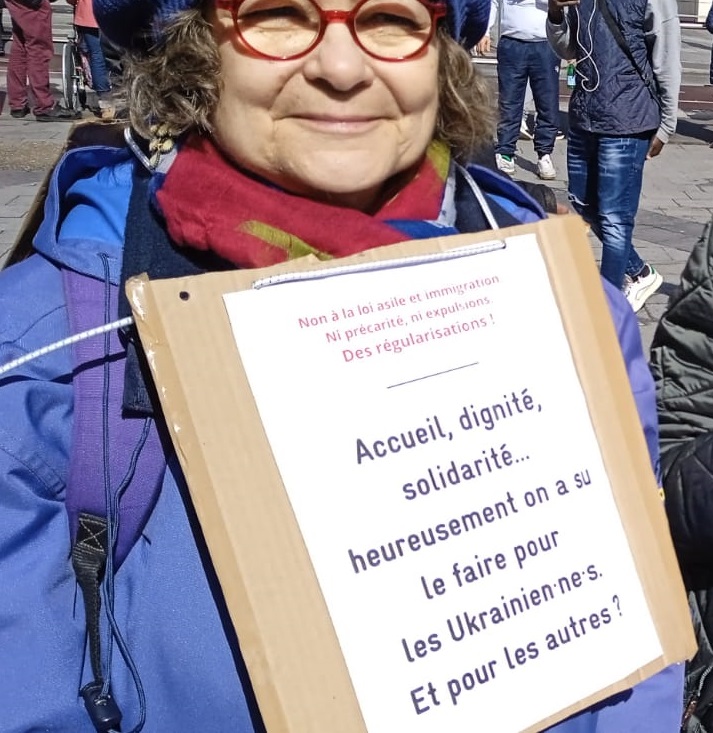 Non à la loi asile et immigration
Ni précarité, ni expulsions
Des régularisations !
Accueil, dignité,
solidarité...
heureusement on a su
le faire pour
les Ukrainien·ne·s.
Et pour les autres ?